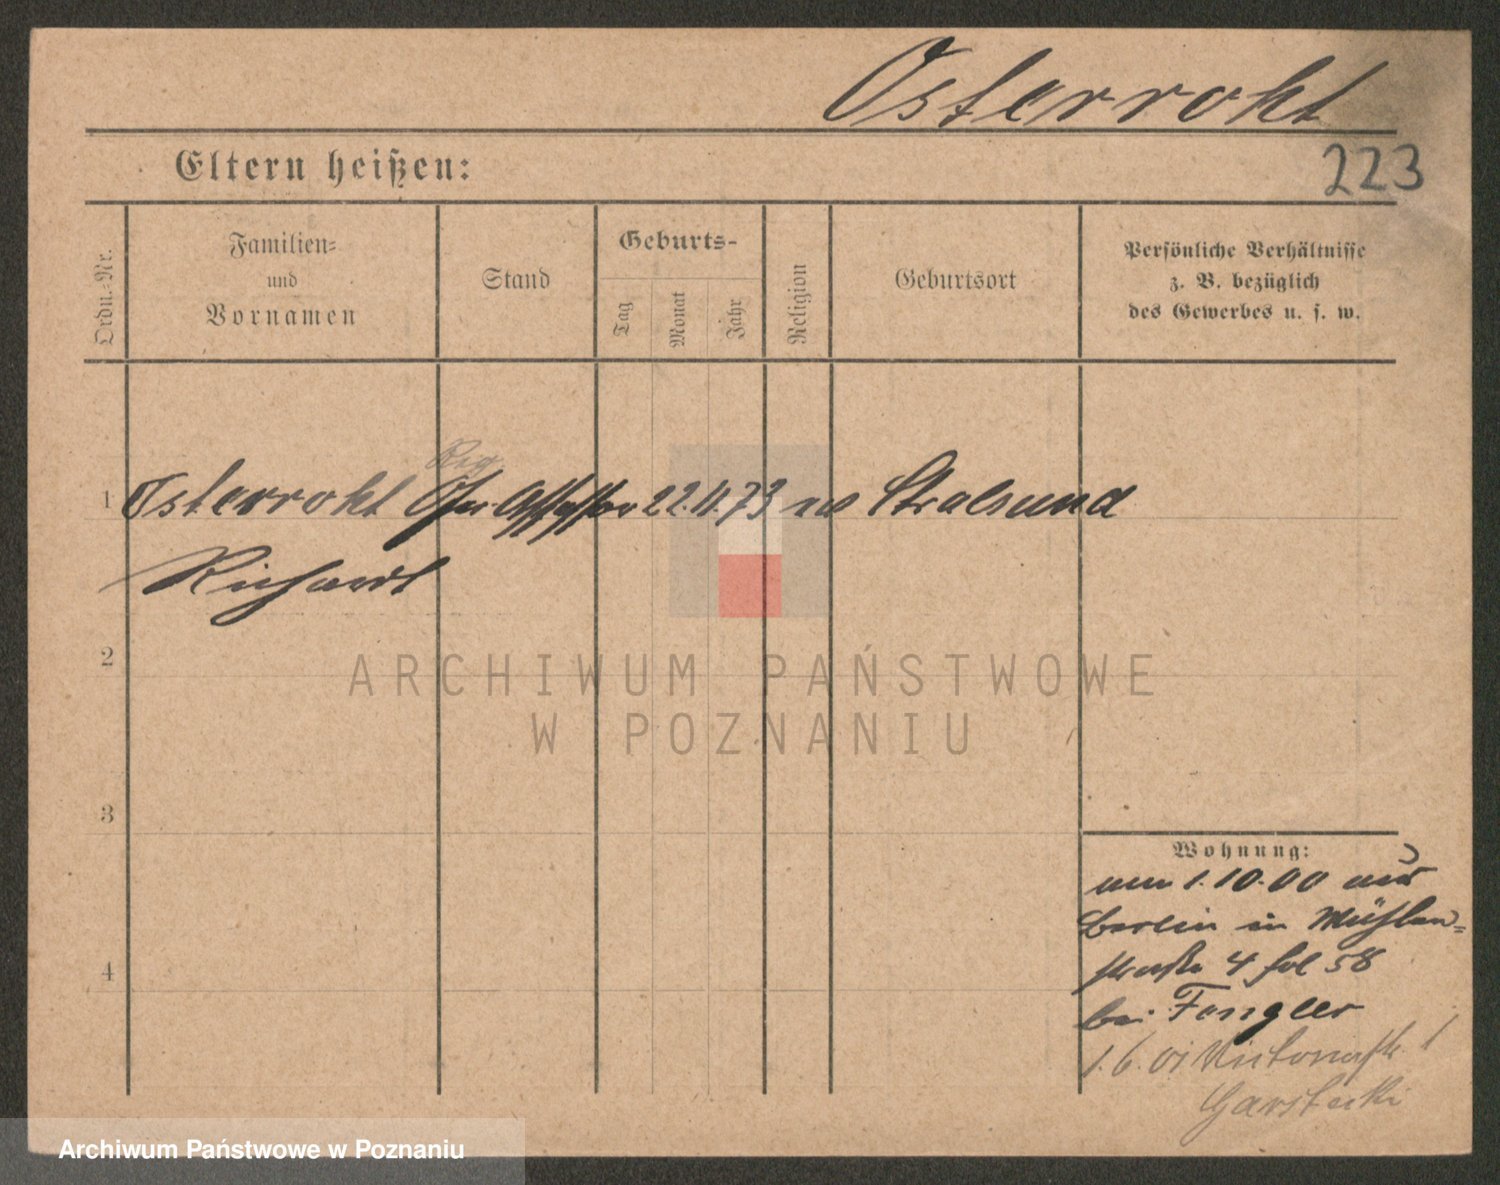 Osterroht
223
Eltern heißen:
Ordn.-Nr.
Familien-
und
Vornamen
Stand
Geburts-
Tag
Monat
Jahr
Religion
Geburtsort
Persönliche Verhältnisse
z. B. bezüglich
des Gewerbes u. s. w.
Reg
1 Osterroht Assessor 22.11.73 ev Stralsund
Richard
2
3
4
Wohnung:
am 1.10.00 aus
Berlin in Mühlen-
straße 4 fol 58
bei Fengler
1.6.01 Victoriastr. 1
Garstecki
ARCHIWUM PAŃSTWOWE
W POZNANIU
Archiwum Państwowe w Poznaniu